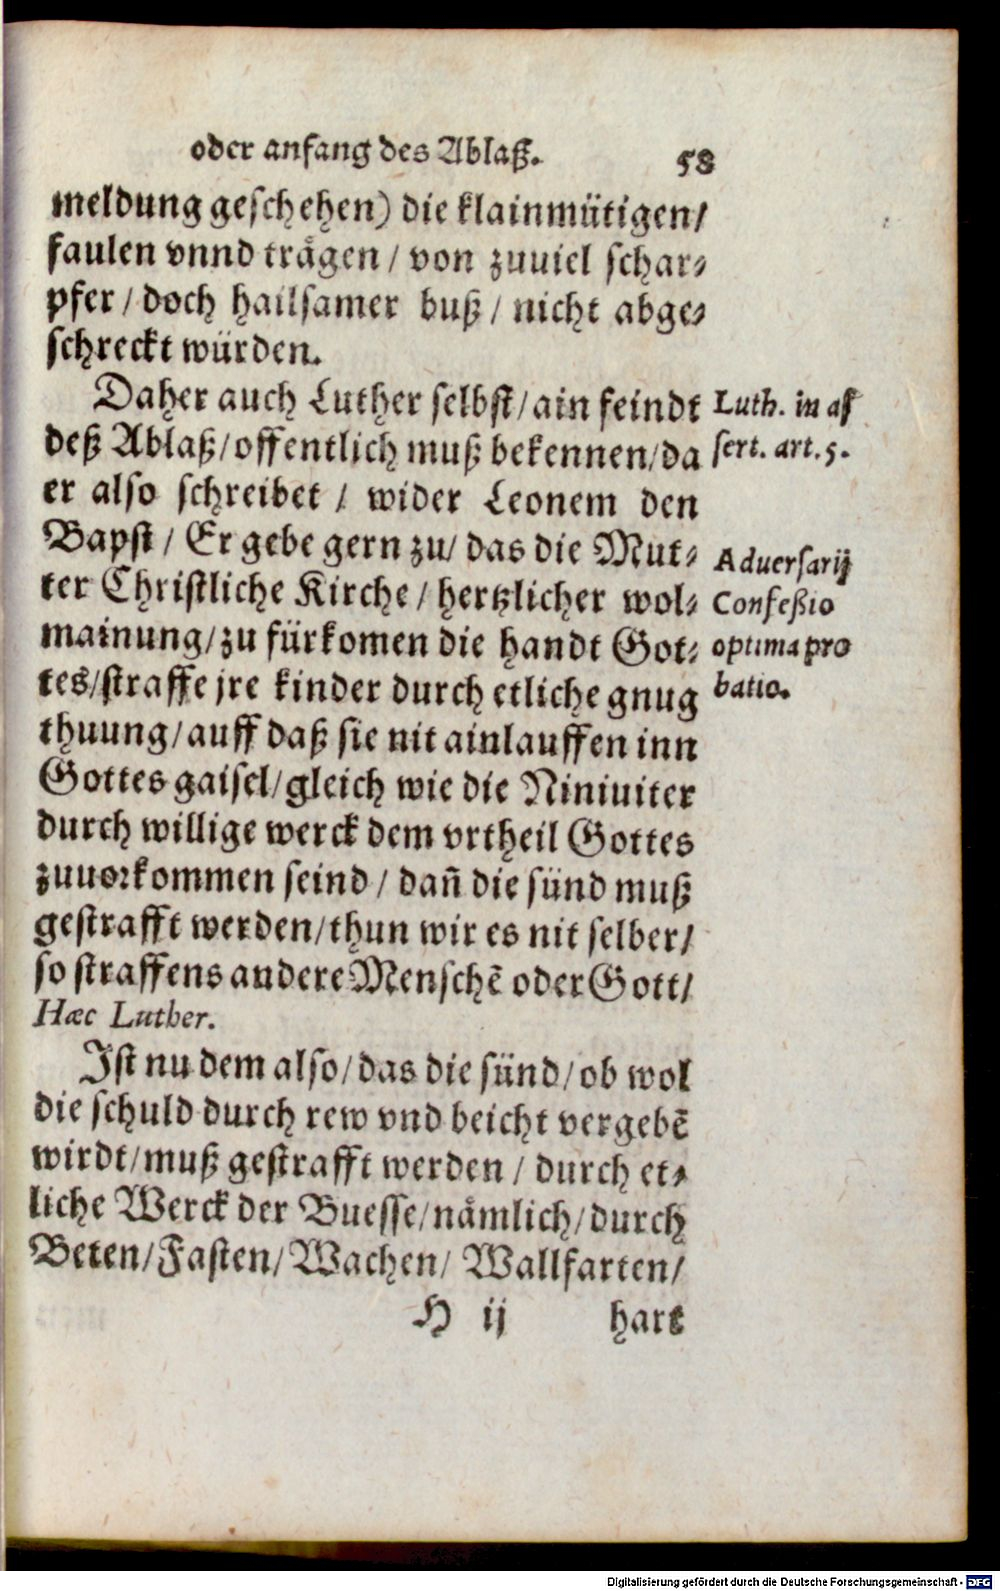 oder anfang des Ablaß. 58
meldung geschehen) die klainmütigen/
faulen vnnd trägen / von zuuiel schar⸗
pfer / doch hailsamer buß / nicht abge⸗
schreckt würden.
Daher auch Luther selbst / ain feindt
deß Ablaß / offentlich muß bekennen / da
er also schreibet / wider Leonem den
Bapst / Er gebe gern zu / das die Mut⸗
ter Christliche Kirche / hertzlicher wol⸗
mainung / zu fürkomen die handt Got⸗
tes / straffe jre kinder durch etliche gnug
thuung / auff daß sie nit ainlauffen inn
Gottes gaisel / gleich wie die Niniuiter
durch willige werck dem vrtheil Gottes
zuuorkommen seind / dañ die sünd muß
gestrafft werden / thun wir es nit selber /
so straffens andere Menschē oder Gott /
Hæc Luther.
Ist nu dem also / das die sünd / ob wol
die schuld durch rew vnd beicht vergebē
wirdt / muß gestrafft werden / durch et⸗
liche Werck der Buesse / nämlich / durch
Beten / Fasten / Wachen / Wallfarten /
H ij hart
Luth. in as
sert. art. 5.
Adversarij
Confeßio
optima pro
batio.
Digitalisierung gefördert durch die Deutsche Forschungsgemeinschaft - DFG